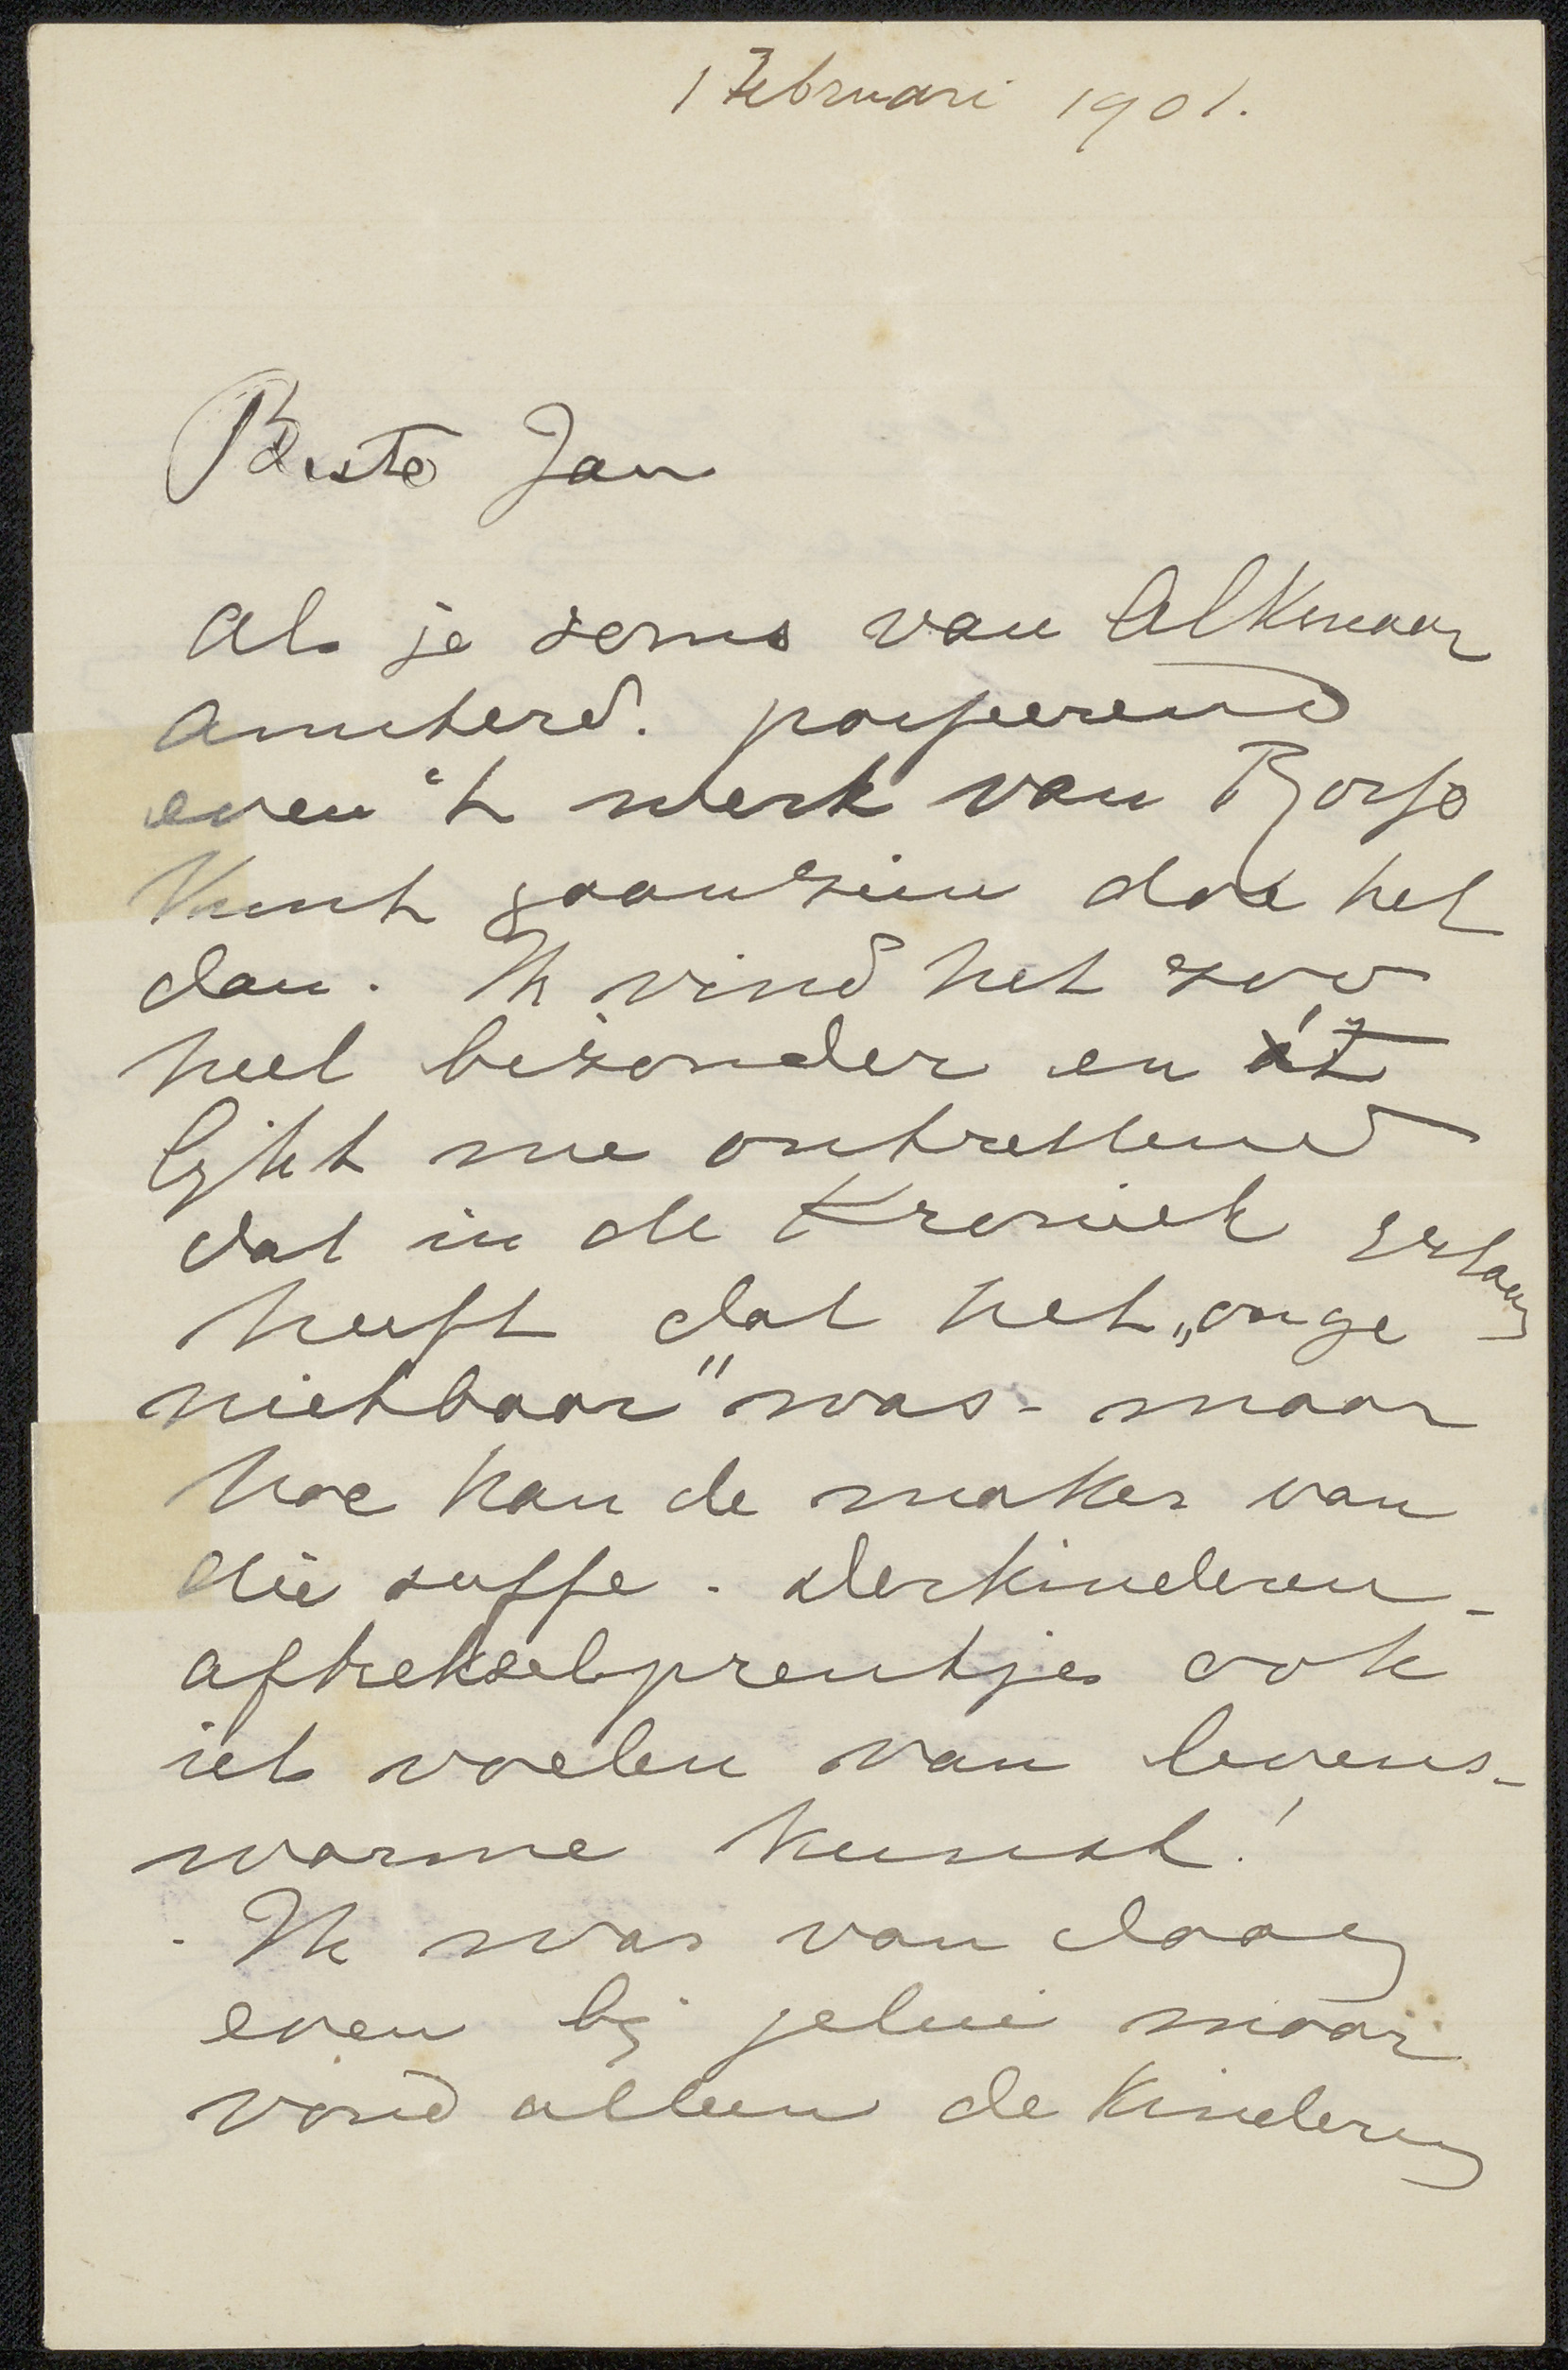 1 Februari 1901.
Beste Jan
Als je soms van Alkmaar
Amsterd. passeerend
even 't werk van Bosse
kunt gaan zien doe het
dan. Ik vind het zoo
heel bizonder en 't
lijkt me ontzettend
dat in de Kroniek gestaan
heeft dat het „onge
nietbaar" was - maar
hoe kan de maker van
die suffe - derkinderen-
aftrekselprentjes ook
iets voelen van levens-
warme kunst!
Ik was van daag
even bij jelui maar
vond alleen de kinderen